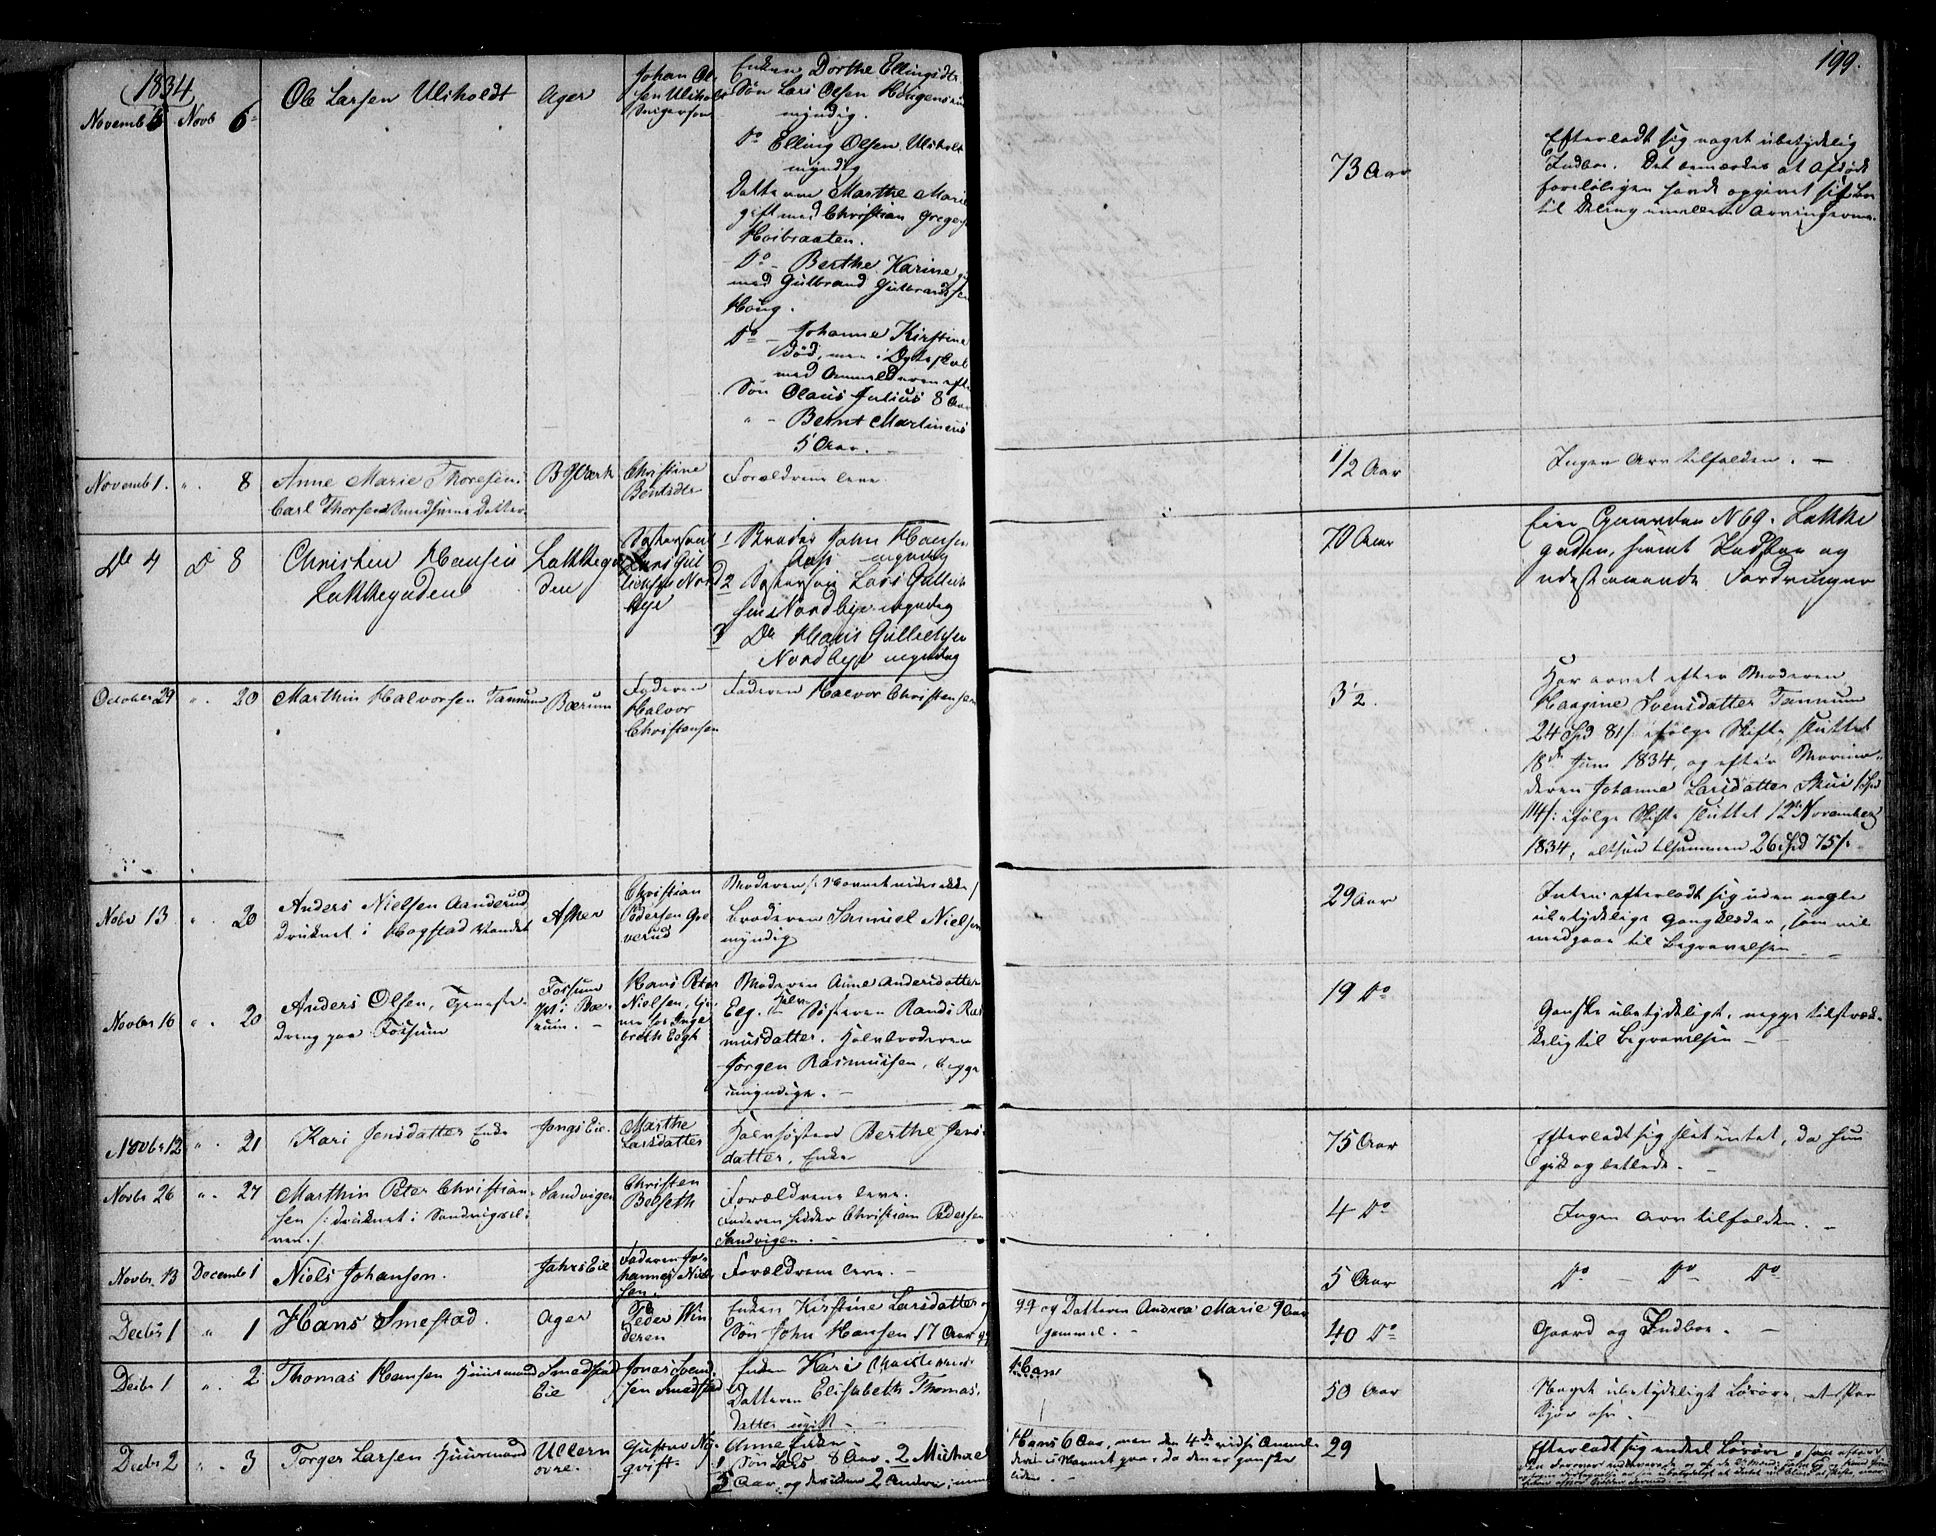 199.
1834
Novemb 3 Novb 6
Ole Larsen Ulsholdt
Ager
Johan Ol-
sen Ulsholt
Svigersøn
Enken Dorthe Ellingsdtr
Søn Lars Olsen Hougen
myndig.
Do Elling Olsen Ulsholt
myndig
Datteren Marthe Marie
gift med Christian Greger
Hoibraaten.
Do - Berthe Karine
med Gulbrand Gulbrandsen
Houg.
Do - Johanne Kirstine
død, men i Ægteskab
med Anmelderen
Søn Olaus Julius 8 Aar
" - Bernt Martinius
5 Aar.
73 Aar
Efterladt sig noget ubetydelig
Indboe. Det bemærkes at Afdøde
foreløbigen havde opgivet sit Boe
til Deling imellem Arvingerne.
Novemb 1. " 8
Anne Marie Thoresen
Carl Thorsen Datter
B Værk
Christine
Berntsdtr
Forældrene leve
1/2 Aar
Ingen Arv tilfalden. -
Do 4 Do 8
Christen Hansen
Lakkegaden
Lakkega
den
Søstersøn
Lars Gul
liksen Nord
bye
1 Broder John Hansen
myndig
2 Søstersøn Lars Gullich
sen Nordbye myndig
3 Do Hans Gullichsen
Nordbye myndig
70 Aar
Eier Gaarden N 69. Lakke
gaden, samt Indboe og
udestaaende Fordringer
October 29 " 20
Marthin Halvorsen Tannum
Bærum
Faderen
Halvor
Christensen
Faderen Halvor Christensen
3 1/2.
Har arvet efter Moderen
Haagine Svensdatter Tannum
24 Spd 81 /: ifølge Skifte sluttet
18de Juni 1834, og efter Mormo-
deren Johanne Larsdatter Skui 1 Spd
114 /: ifølge Skifte sluttet 12te November
1834, altsaa tilsammen 26 Spd 75 /:
Nobr 13 " 20
Anders Nielsen Aanderud
druknet i Bogstad Vandet
Asker
Christian
Pedersen Gre
verud
Moderen /: Navnet vides ikke /
Broderen Samuel Nielsen
myndig
29 Aar
Intet efterladt sig uden nogle
ubetydelige Gangklæder, som vil
medgaae til Begravelsen
Novbr 16 " 20
Anders Olsen, Tjeneste-
dreng paa Fossum
Fossum
i Bæ-
rum. -
Hans Peter
Nielsen, Tje-
ner hos Inge
breth Eogh
Moderen Anne Andersdatter
Eeg. Halv Søsteren Randi Ras
musdatter. Halvbroderen
Jørgen Rasmussen, begge
umyndige. -
19 Do
Ganske ubetydeligt, neppe tilstræk-
kelig til Begravelsen -
Novbr 12 " 21
Kari Jensdatter Enke
Jongs Eie.
Marthe
Larsdatter
Halvsøster Berthe Jens-
datter, Enke
75 Aar
Efterladt sig slet intet, da hun
gik og betlede. -
Novbr 26 " 27
Marthin Peter Christian-
sen /: druknet i Sandvigsel-
ven :/
Sandvigen
Christen
Belseth
Forældrene leve.
Faderen hedder Christian Pedersen
Sandvigen. -
4 Do
Ingen Arv tilfalden. -
Novbr. 13 Decemb 1
Niels Johansen.
Jahrs Eie
Faderen Jo-
hannes Niel-
sen.
Forældrene leve. -
5 Aar
Do - Do Do
Decbr 1 " 1
Hans Smestad.
Ager
Peder Vin
deren
Enken Kirstine Larsdatter
Søn John Hansen 17 Aar
og Datteren Andrea Marie 9 Aar
gammel. -
40 Do
Gaard og Indboe. -
Decbr 1 " 2
Thomas Hansen Huusmand
Smedstad
Eie
Jonas Svend
sen Smedstad
Enken Kari
Datteren Elisabeth Thomas-
datter ugift. -
50 Aar
Noget ubetydeligt Løsøre,
Decbr 2 " 3
Torger Larsen Huusmand
Ullern
øvre.
Gustav
qvist.
Anne Enke
1 Søn Lars 8 Aar. 2 Michael
5 Aar, og desuden 2 Andre,
Hans 6 Aar, men den 4de vidste Anmel-
deren ei Navnet paa, da den er ganske
liden.
29
Efterladt sig endeel Løsøre